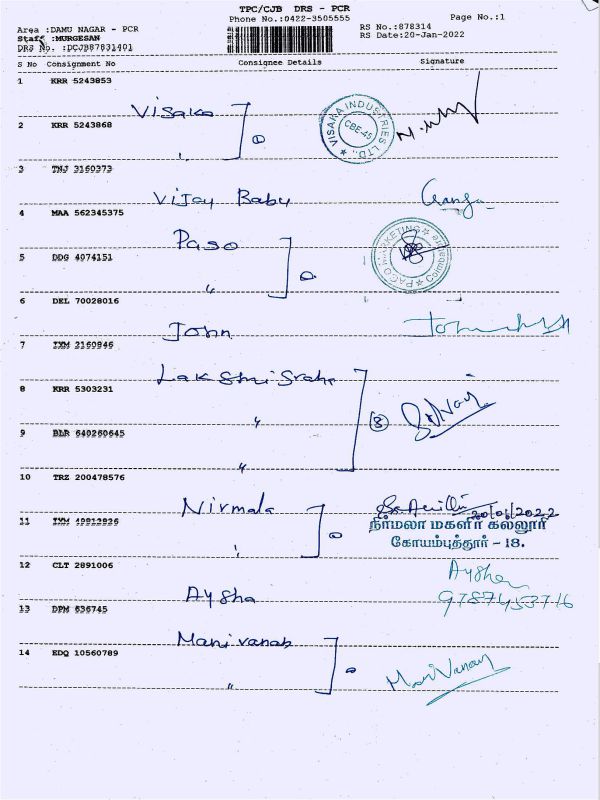 TPC/CJB DRS - PCR
Phone No.:0422-3505555
Page No.:1
Area :DAMU NAGAR - PCR
RS No.:878314
Staff :MURGESAN
RS Date:20-Jan-2022
DRS No. :DCJB87831401
S No Consignment No Consignee Details Signature
1 KRR 5243853
Visaka
VISAKA INDUSTRIES LTD. CBE-45
2 KRR 5243868
3 TNJ 3160373
Vijay Babu Ganga
4 MAA 562345375
Paso
5 DDG 4074151
〃
6 DEL 70028016
John
7 IXM 3160946
8 KRR 5303231
〃 3
9 BLR 640260645
〃
10 TRZ 200478576
Nirmala
20/01/2022
11 IXM 49913826
நிர்மலா மகளிர் கல்லூரி
கோயம்புத்தூர் - 18.
12 CLT 2891006
Aysha
Aysha
9787453716
13 DPM 636745
Manivanah
14 EDQ 10560789
〃
ManiVanan